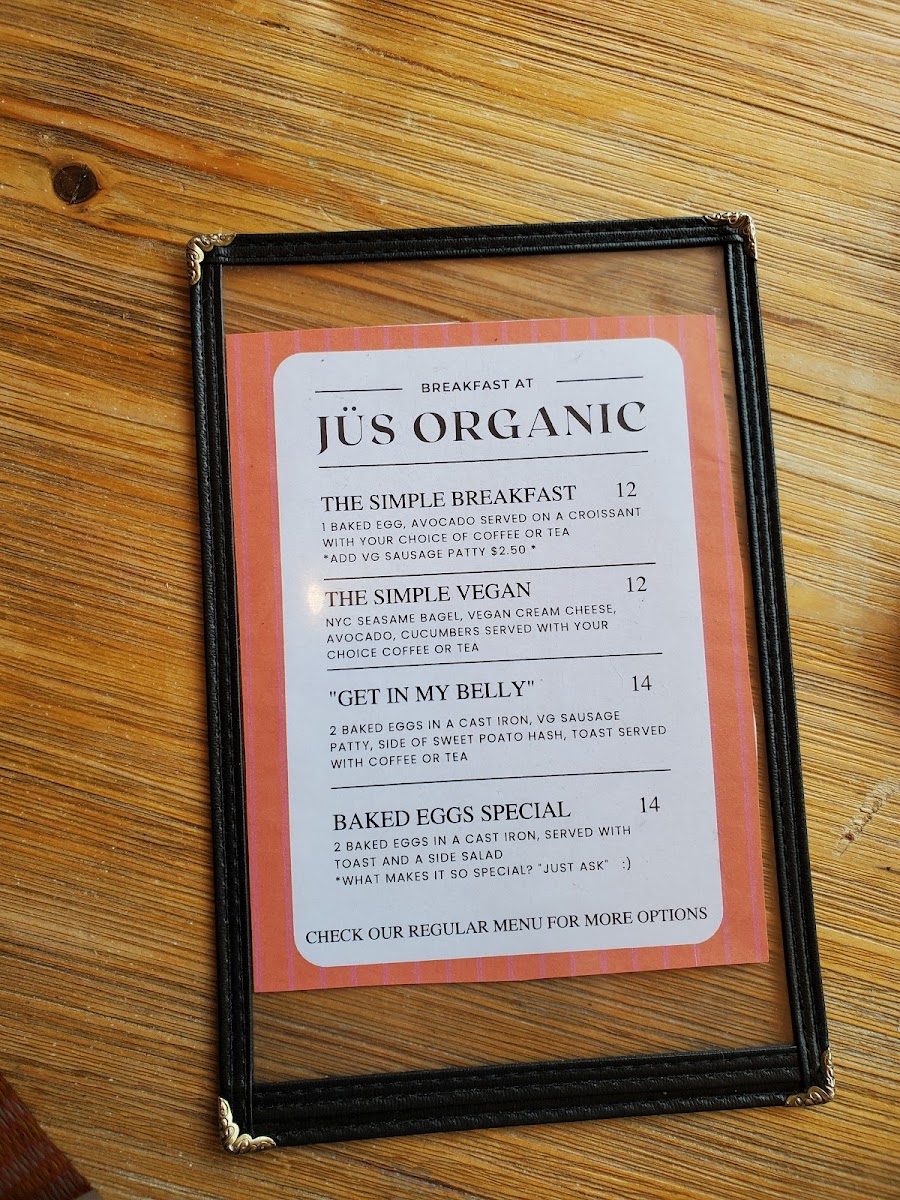 BREAKFAST AT
JÜS ORGANIC
THE SIMPLE BREAKFAST 12
1 BAKED EGG, AVOCADO SERVED ON A CROISSANT
WITH YOUR CHOICE OF COFFEE OR TEA
*ADD VG SAUSAGE PATTY $2.50 *
THE SIMPLE VEGAN 12
NYC SEASAME BAGEL, VEGAN CREAM CHEESE,
AVOCADO, CUCUMBERS SERVED WITH YOUR
CHOICE COFFEE OR TEA
"GET IN MY BELLY" 14
2 BAKED EGGS IN A CAST IRON, VG SAUSAGE
PATTY, SIDE OF SWEET POATO HASH, TOAST SERVED
WITH COFFEE OR TEA
BAKED EGGS SPECIAL 14
2 BAKED EGGS IN A CAST IRON, SERVED WITH
TOAST AND A SIDE SALAD
*WHAT MAKES IT SO SPECIAL? "JUST ASK" :)
CHECK OUR REGULAR MENU FOR MORE OPTIONS